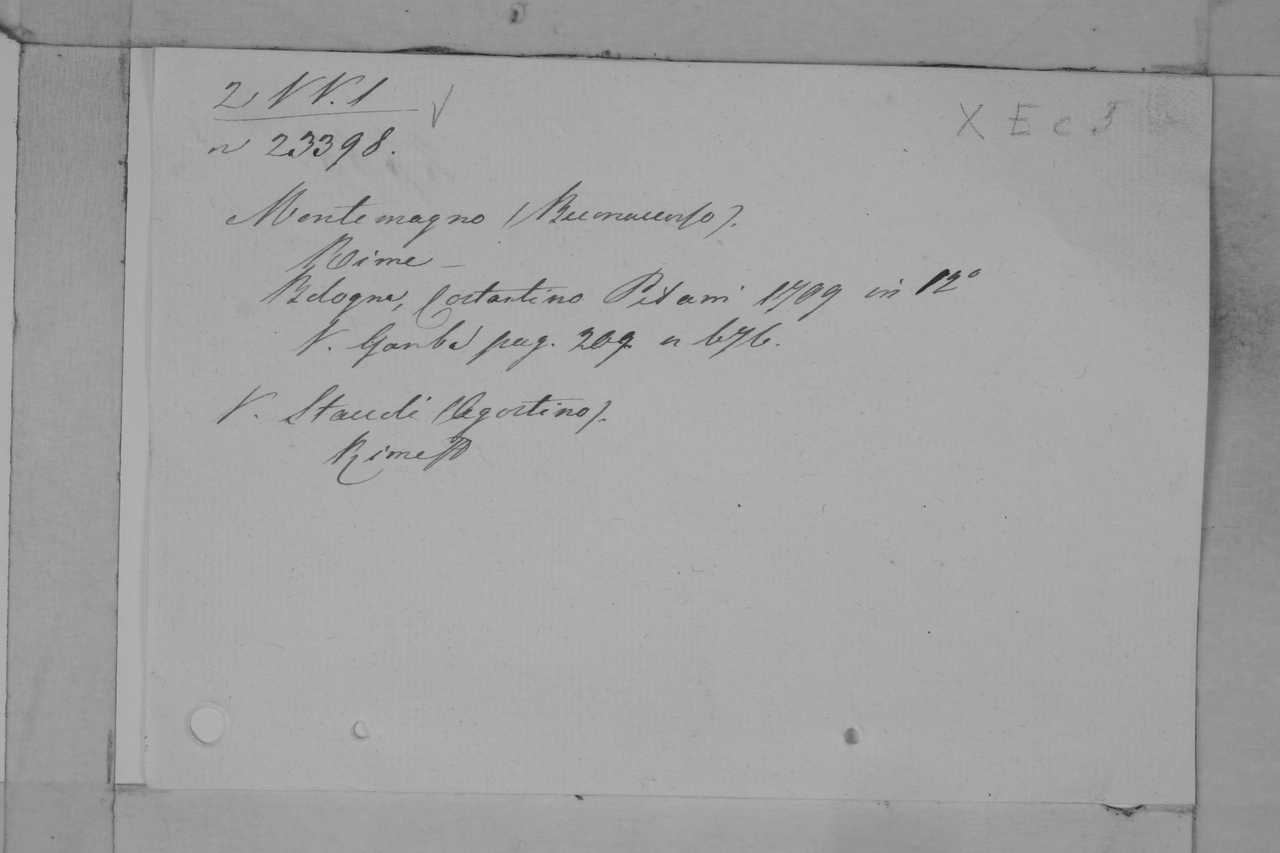 2 VV. 1
n 23398.
X E c 5
Montemagno (Buonaccorso).
Rime –
Bologna, Costantino Pisarri 1709 in 12º
V. Gamba pag. 209. n 676.
V. Staccoli (Agostino).
Rime